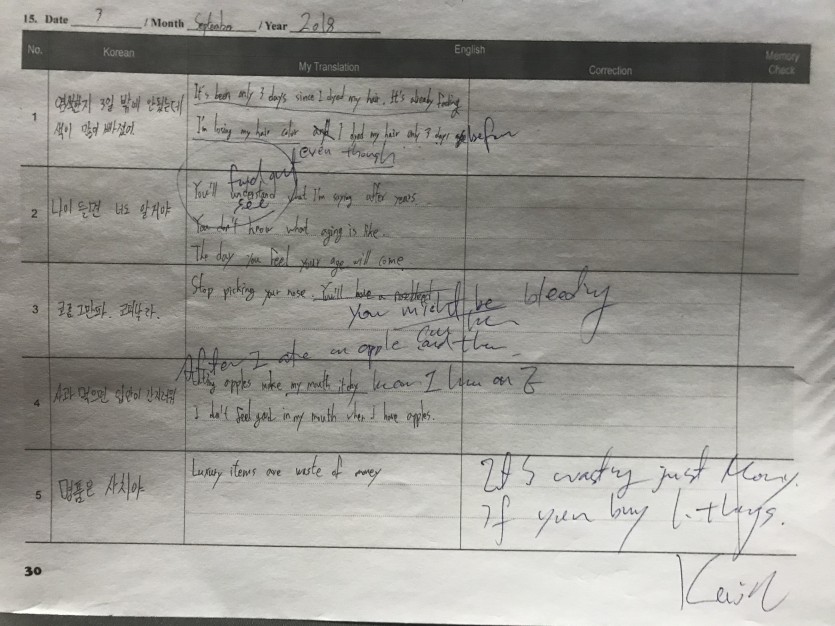 15. Date 7 / Month September / Year 2018
No. Korean English Memory Check
My Translation Correction
1 염색한지 3일 밖에 안됐는데
색이 많이 빠졌어
It's been only 3 days since I dyed my hair. It's already fading
I'm losing my hair color and I dyed my hair only 3 days before
even though
2 나이 들면 너도 알거야
find out
You'll understand what I'm saying after years.
see
You don't know what aging is like.
The day you feel your age will come.
3 코 좀 그만파. 코피날라.
Stop picking your nose. You'll have a
you might be bleeding
After I ate an apple
4 사과 먹으면 입안이 간지러워
apples make my mouth itchy
I don't feel good in my mouth when I have apples.
5 명품은 사치야
Luxury items are waste of money
It's wasting just Money.
If you buy
30
Kevin